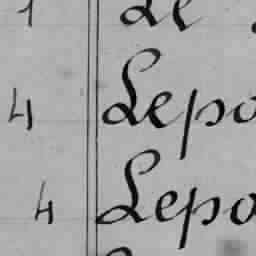 1 Le
4 Lepo
4 Lepo